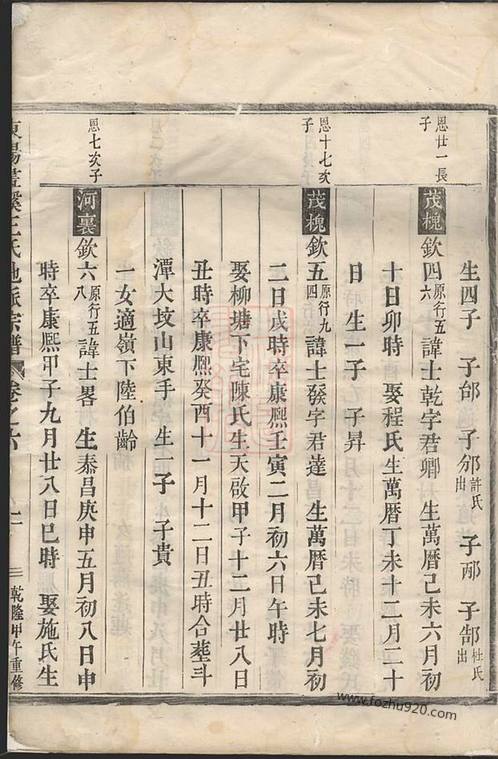 生四子　子邰　子邠許氏出　子邴　子郜杜氏出
恩廿一長子
茂槐 欽四原行五六諱士乾字君卿　生萬曆己未六月初
十日卯時　娶程氏生萬曆丁未十二月二十
日　生一子　子昇
恩十七次子
茂槐 欽五原行九四諱士發字君達　生萬曆己未七月初
二日戌時卒康熙壬寅二月初六日午時
娶柳塘下宅陳氏生天啟甲子十二月廿八日
丑時卒康熙癸酉十一月十二日丑時合塟斗
潭大坟山東手　生一子　子貴
一女適嶺下陸伯齡
恩七次子
河裏 欽六原行五八諱士畧　生泰昌庚申五月初八日申
時卒康熙甲子九月廿八日巳時　娶施氏生
東陽畫溪王氏 派宗譜　卷之六　乾隆甲午重修
www.fozhu920.com